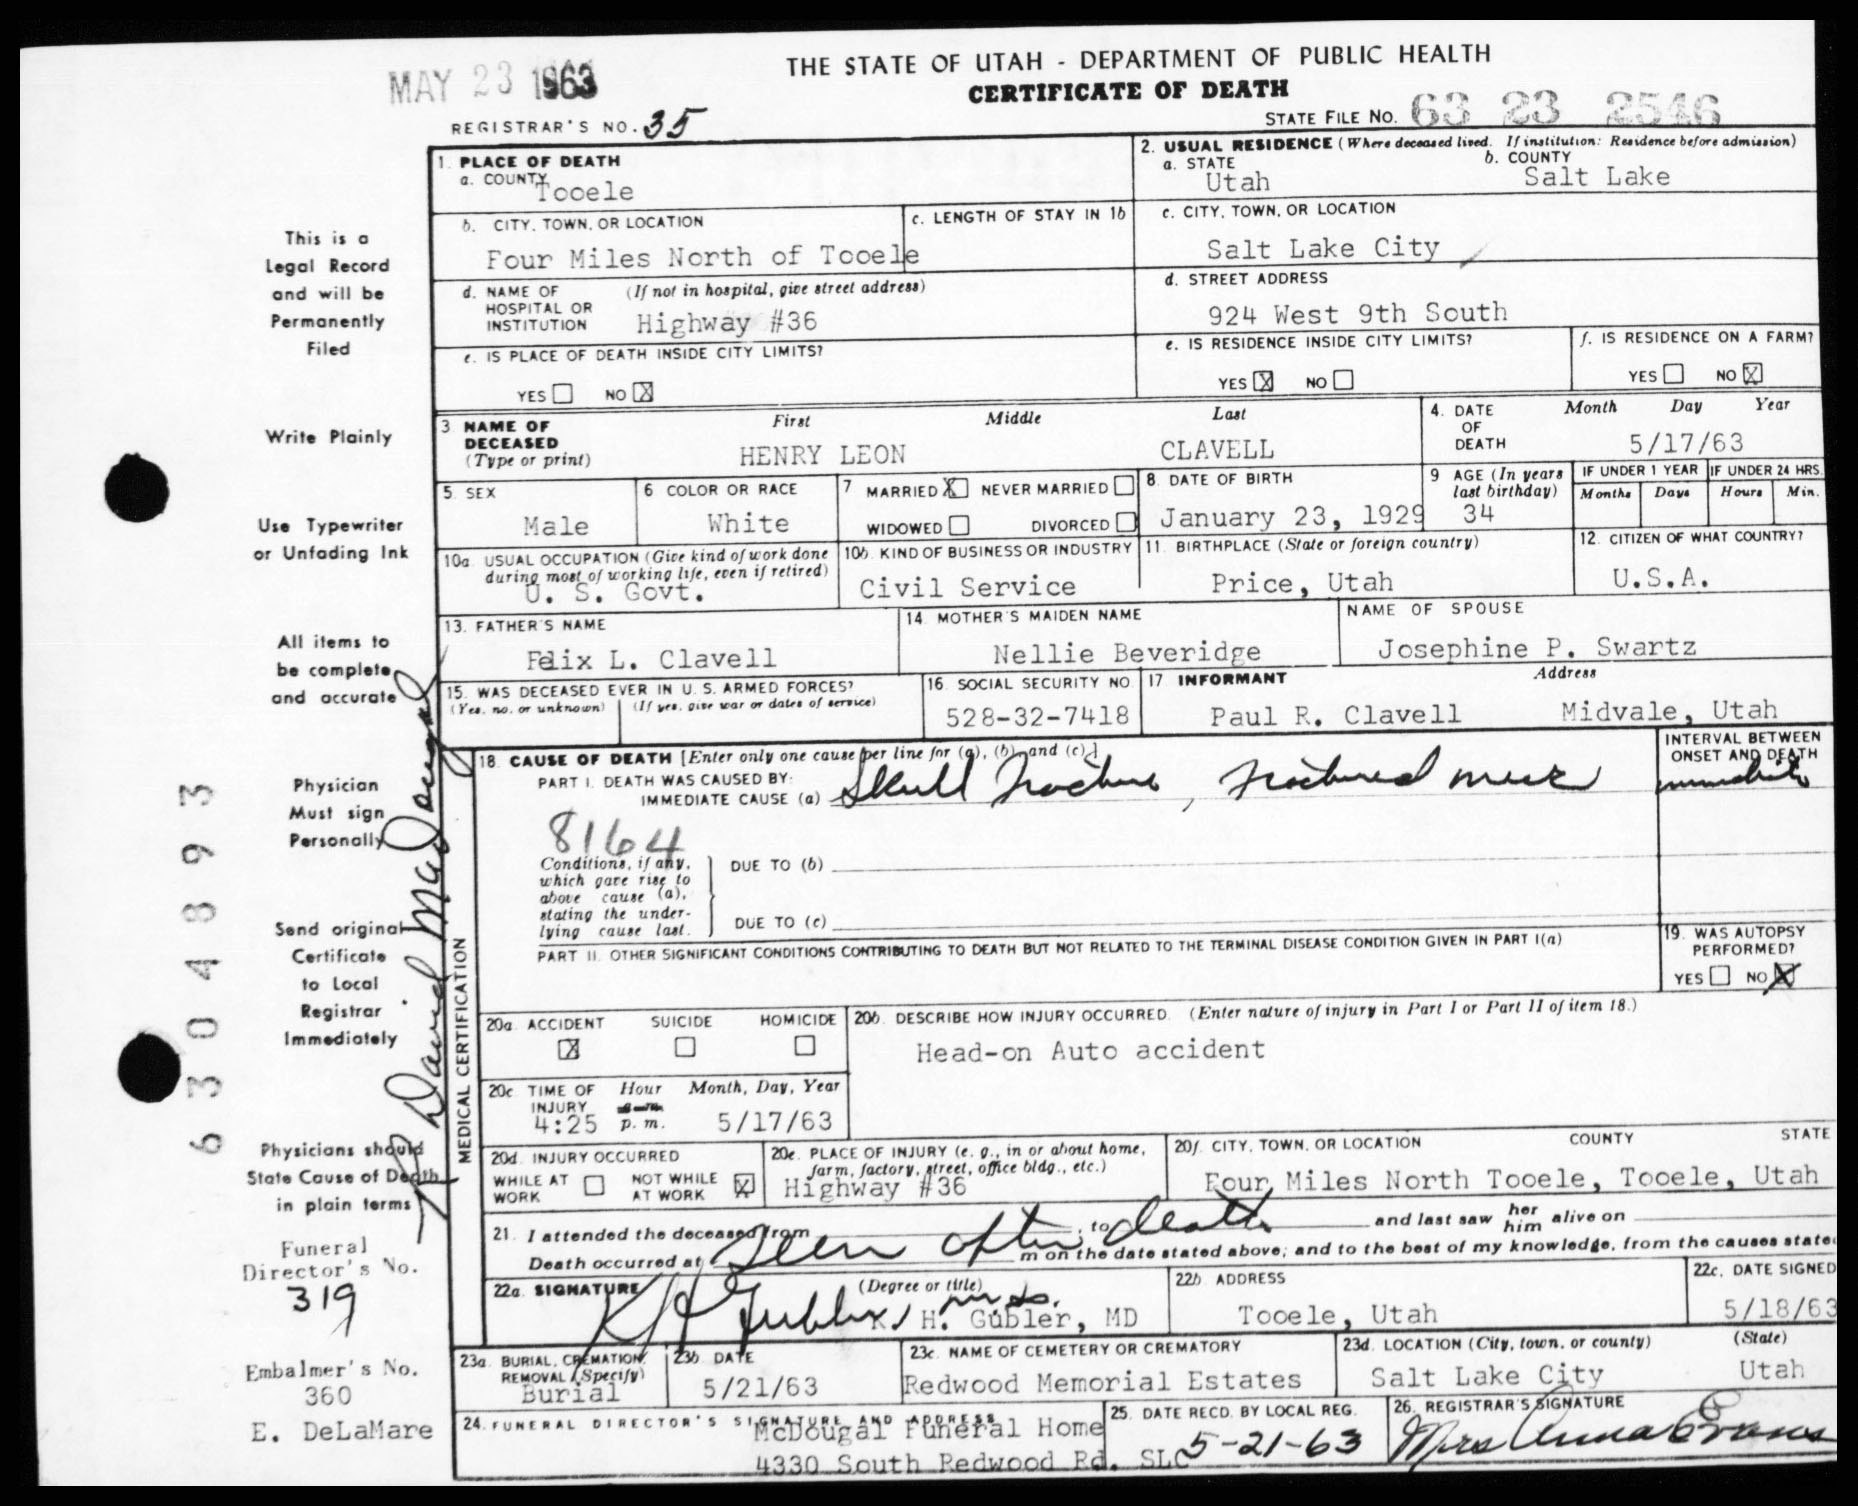 MAY 23 1963
THE STATE OF UTAH - DEPARTMENT OF PUBLIC HEALTH
CERTIFICATE OF DEATH
REGISTRAR'S NO. 35
STATE FILE NO. 63 23 2546
This is a
Legal Record
and will be
Permanently
Filed
Write Plainly
Use Typewriter
or Unfading Ink
All items to
be complete
and accurate
Physician
Must sign
Personally
Send original
Certificate
to Local
Registrar
Immediately
Physicians should
State Cause of Death
in plain terms
Funeral
Director's No.
319
Embalmer's No.
360
E. DeLaMare
6304893
David McDougal
1. PLACE OF DEATH
a. COUNTY Tooele
b. CITY, TOWN, OR LOCATION
Four Miles North of Tooele
c. LENGTH OF STAY IN 1b
d. NAME OF HOSPITAL OR INSTITUTION (If not in hospital, give street address)
Highway #36
e. IS PLACE OF DEATH INSIDE CITY LIMITS?
YES NO X
2. USUAL RESIDENCE (Where deceased lived. If institution: Residence before admission)
a. STATE Utah
b. COUNTY Salt Lake
c. CITY, TOWN, OR LOCATION
Salt Lake City
d. STREET ADDRESS
924 West 9th South
e. IS RESIDENCE INSIDE CITY LIMITS?
YES X NO
f. IS RESIDENCE ON A FARM?
YES NO X
3 NAME OF DECEASED (Type or print)
First Middle Last
HENRY LEON CLAVELL
4. DATE OF DEATH Month Day Year
5/17/63
5. SEX
Male
6 COLOR OR RACE
White
7 MARRIED X NEVER MARRIED
WIDOWED DIVORCED
8. DATE OF BIRTH
January 23, 1929
9 AGE (In years last birthday)
34
IF UNDER 1 YEAR
Months Days
IF UNDER 24 HRS.
Hours Min.
10a. USUAL OCCUPATION (Give kind of work done during most of working life, even if retired)
U. S. Govt.
10b. KIND OF BUSINESS OR INDUSTRY
Civil Service
11. BIRTHPLACE (State or foreign country)
Price, Utah
12. CITIZEN OF WHAT COUNTRY?
U.S.A.
13. FATHER'S NAME
Felix L. Clavell
14. MOTHER'S MAIDEN NAME
Nellie Beveridge
NAME OF SPOUSE
Josephine P. Swartz
15. WAS DECEASED EVER IN U.S. ARMED FORCES?
(Yes, no, or unknown) (If yes, give war or dates of service)
16. SOCIAL SECURITY NO
528-32-7418
17 INFORMANT Address
Paul R. Clavell Midvale, Utah
MEDICAL CERTIFICATION
18. CAUSE OF DEATH [Enter only one cause per line for (a), (b), and (c).]
PART I. DEATH WAS CAUSED BY:
IMMEDIATE CAUSE (a) Skull fracture, fractured neck
INTERVAL BETWEEN ONSET AND DEATH
immediate
8164
Conditions, if any, which gave rise to above cause (a), stating the underlying cause last.
DUE TO (b)
DUE TO (c)
PART II. OTHER SIGNIFICANT CONDITIONS CONTRIBUTING TO DEATH BUT NOT RELATED TO THE TERMINAL DISEASE CONDITION GIVEN IN PART I(a)
19. WAS AUTOPSY PERFORMED?
YES NO X
20a. ACCIDENT SUICIDE HOMICIDE
X
20b. DESCRIBE HOW INJURY OCCURRED. (Enter nature of injury in Part I or Part II of item 18.)
Head-on Auto accident
20c. TIME OF INJURY Hour Month, Day, Year
a.m.
4:25 p.m. 5/17/63
20d. INJURY OCCURRED
WHILE AT WORK NOT WHILE AT WORK X
20e. PLACE OF INJURY (e. g., in or about home, farm, factory, street, office bldg., etc.)
Highway #36
20f. CITY, TOWN, OR LOCATION COUNTY STATE
Four Miles North Tooele, Tooele, Utah
21. I attended the deceased from , to and last saw her him alive on
Seen after death
Death occurred at m on the date stated above; and to the best of my knowledge, from the causes stated
22a. SIGNATURE (Degree or title)
K H Gubler M.D.
K. H. Gubler, MD
22b. ADDRESS
Tooele, Utah
22c. DATE SIGNED
5/18/63
23a. BURIAL, CREMATION, REMOVAL (Specify)
Burial
23b. DATE
5/21/63
23c. NAME OF CEMETERY OR CREMATORY
Redwood Memorial Estates
23d. LOCATION (City, town, or county) (State)
Salt Lake City Utah
24. FUNERAL DIRECTOR'S SIGNATURE AND ADDRESS
McDougal Funeral Home
4330 South Redwood Rd. SLC
25. DATE RECD. BY LOCAL REG.
5-21-63
26. REGISTRAR'S SIGNATURE
Mrs Anna Evans